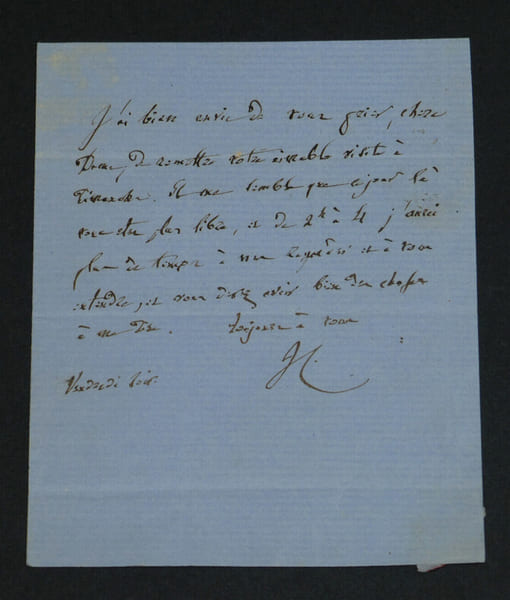 J'ai bien envie de vous prier, chère
Dame, de remettre votre aimable visite à
Dimanche. Il me semble que ce jour là
vous etes plus libre, et de 2h à 4 j'aurai
plus de temps à vous et à vous
entendre, car vous devez avoir bien des choses
à me dire. Toujours à vous
Vendredi soir.